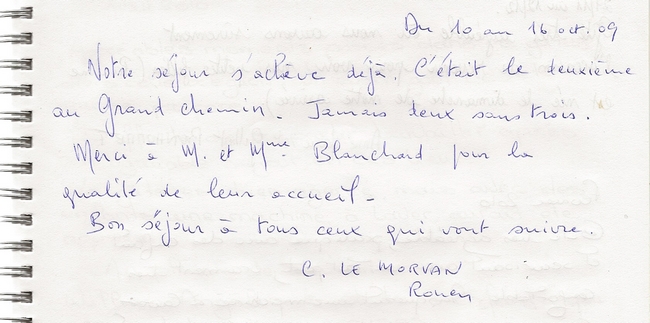 Du 10 au 16 oct. 09
Notre séjour s'achève déjà. C'était le deuxième
au Grand chemin. Jamais deux sans trois.
Merci à M. et Mme Blanchard pour la
qualité de leur accueil.
Bon séjour à tous ceux qui vont suivre.
C. LE MORVAN
Rouen